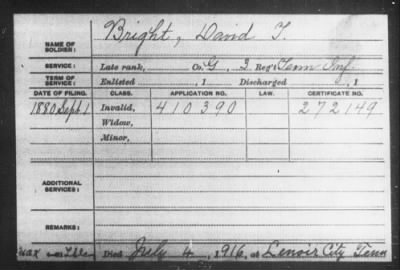 NAME OF SOLDIER: Bright, David T.
SERVICE: Late rank, Co. G, 3 Reg't Tenn Inf.
TERM OF SERVICE: Enlisted , 1 Discharged , 1
DATE OF FILING. CLASS. APPLICATION NO. LAW. CERTIFICATE NO.
1880 Sept 1 Invalid, 410390 272149
Widow,
Minor,
ADDITIONAL SERVICES:
REMARKS:
Died July 4, 1916, at Lenoir City Tenn